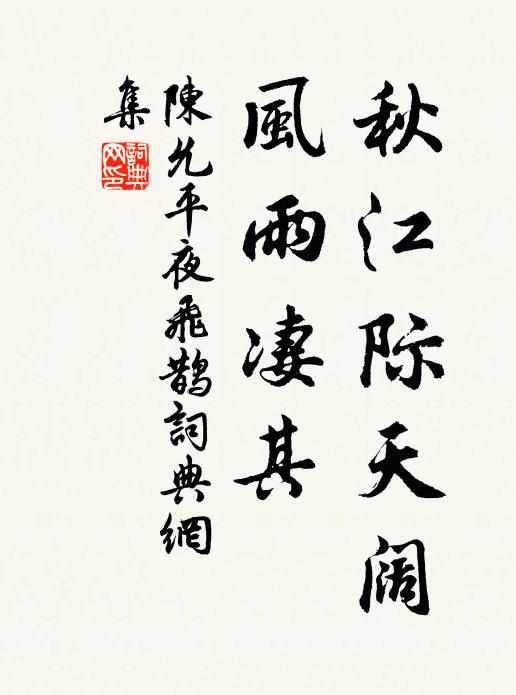 秋江际天阔
風雨凄其
陳允平夜飛鵲詞典網
集
詞典网印